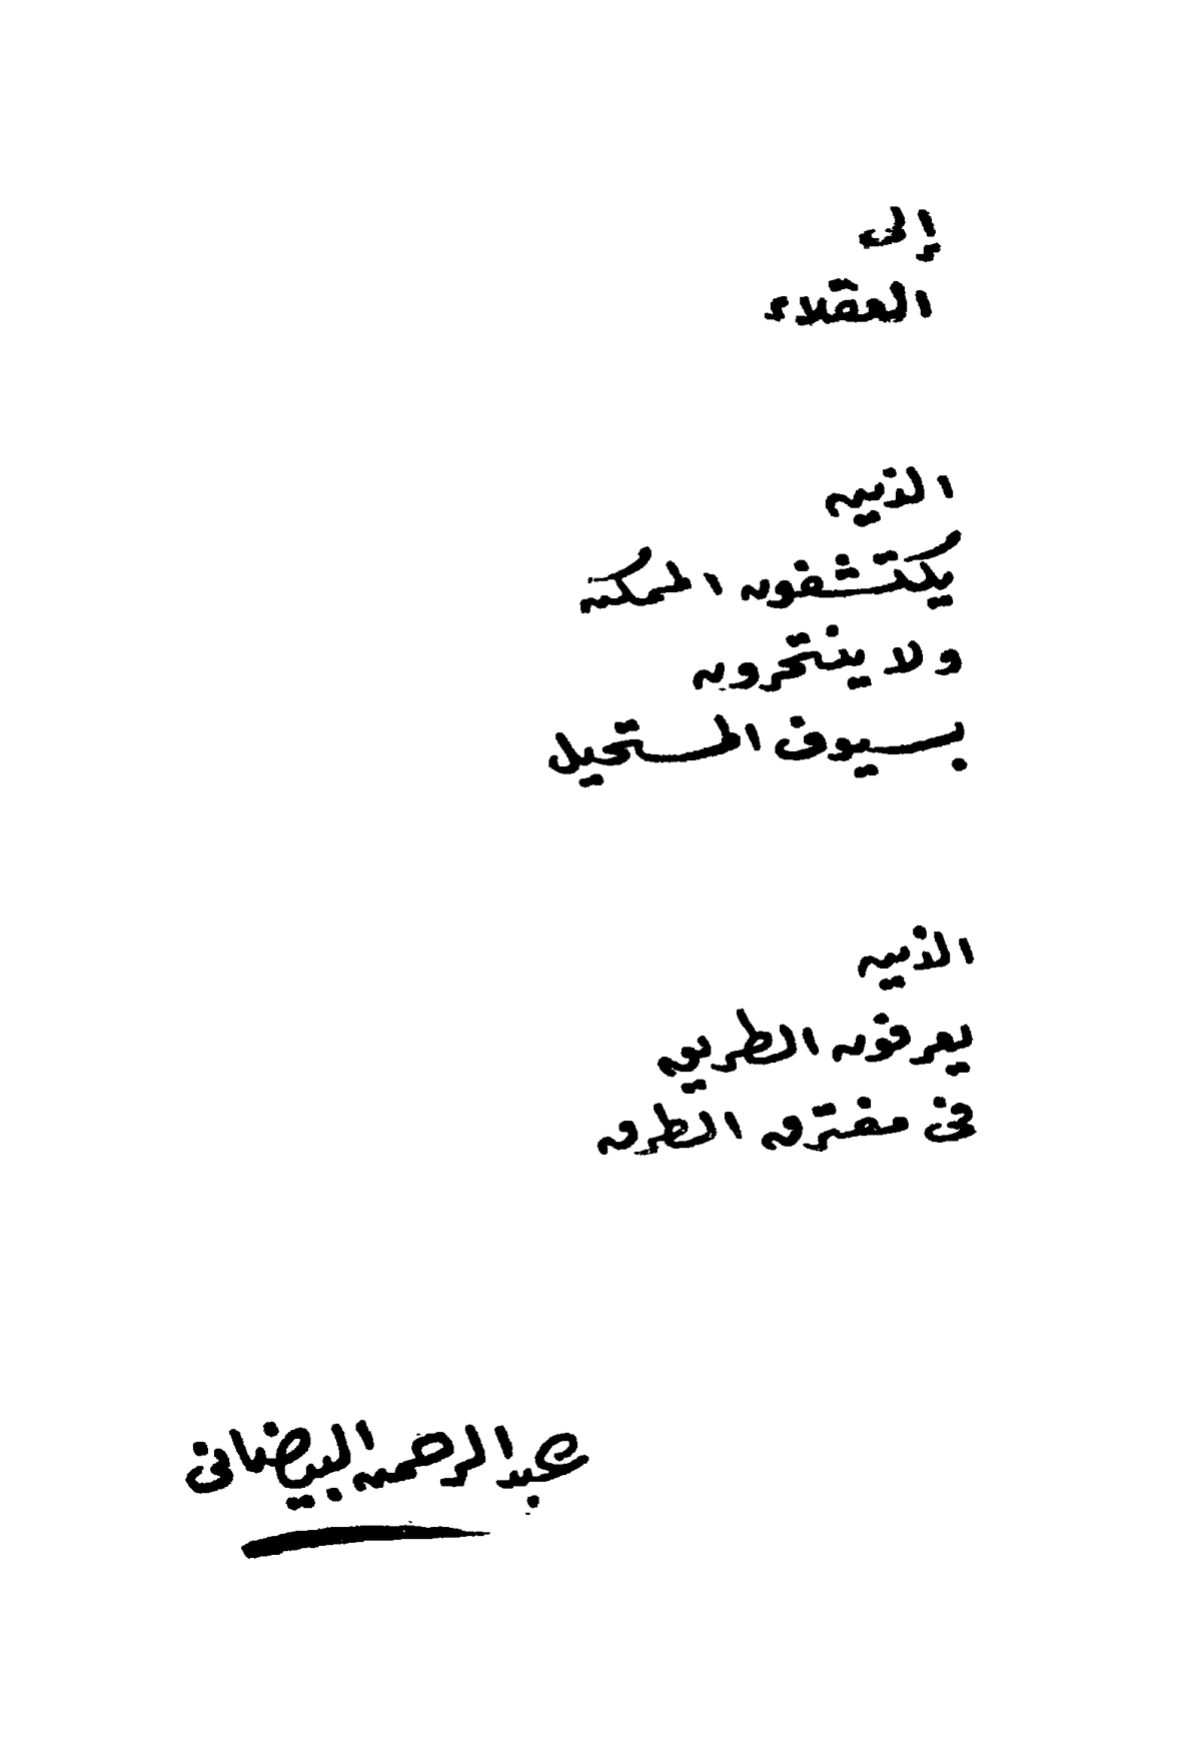 إلى
العقلاء
الذين
يكتشفون الممكن
ولا ينتحرون
بسيوف المستحيل
الذين
يعرفون الطريق
فى مفترق الطرق
عبد الرحمن البيضانى